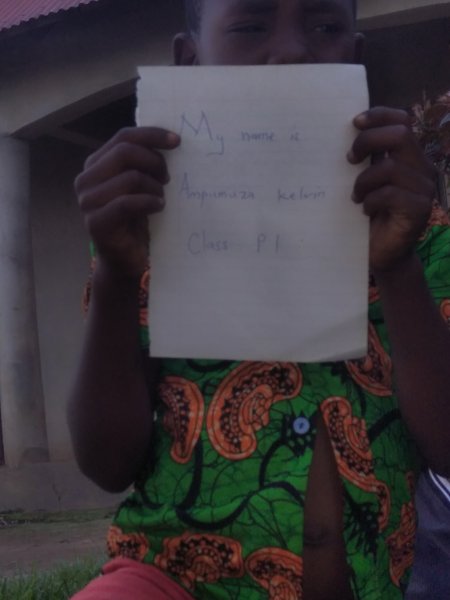 My name is
Ampumuza kelvin
Class P1